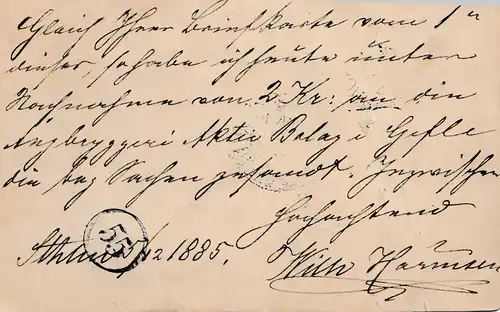 Gleich Ihrer Briefkarte vom 1ten
dieses, so habe ich heute unter
Nachnahme von 2 Kr: an die
Ångbryggeri Aktie Bolag i Gefle
die bez Sachen gesandt. Inzwischen
Hochachtend
Sthlm /12 1885. Wilh Harmsen
55